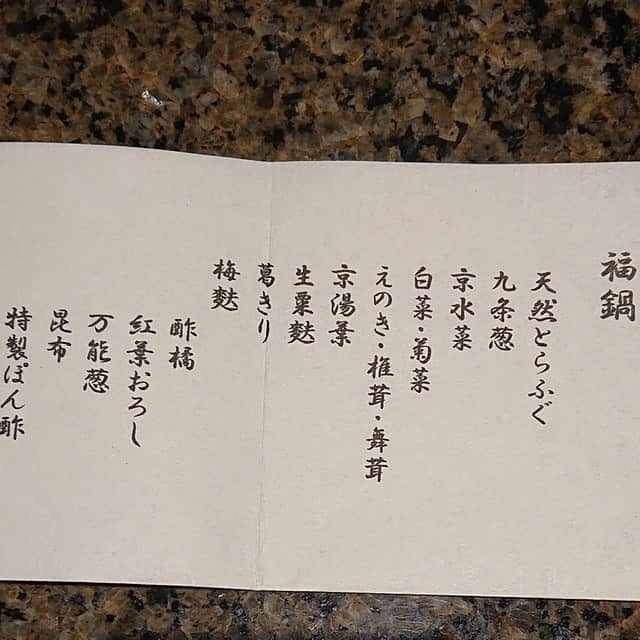 福鍋
天然とらふぐ
九条葱
京水菜
白菜・菊菜
えのき・椎茸・舞茸
京湯葉
生粟麩
葛きり
梅麩
酢橘
紅葉おろし
万能葱
昆布
特製ぽん酢